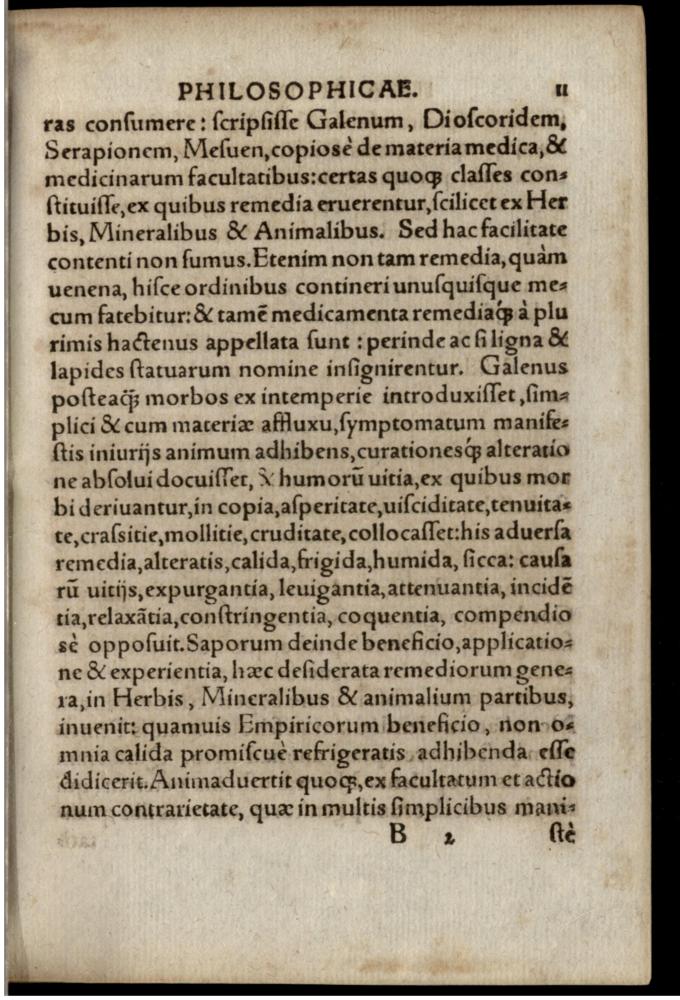 PHILOSOPHICAE. 11
ras conſumere: ſcripſiſſe Galenum, Dioſcoridem,
Serapionem, Meſuen, copiosè de materia medica, &
medicinarum facultatibus: certas quoq; claſſes con⸗
ſtituiſſe, ex quibus remedia eruerentur, ſcilicet ex Her
bis, Mineralibus & Animalibus. Sed hac facilitate
contenti non ſumus. Etenim non tam remedia, quàm
uenena, hiſce ordinibus contineri unuſquiſque me⸗
cum fatebitur: & tamē medicamenta remediaq́; à plu
rimis hactenus appellata ſunt : perinde ac ſi ligna &
lapides ſtatuarum nomine inſignirentur. Galenus
poſteaq̃; morbos ex intemperie introduxiſſet, ſim⸗
plici & cum materiæ affluxu, ſymptomatum manife⸗
ſtis iniurijs animum adhibens, curationesq́; alteratio
ne abſolui docuiſſet, & humorū uitia, ex quibus mor
bi deriuantur, in copia, aſperitate, uiſciditate, tenuita⸗
te, craſsitie, mollitie, cruditate, collocaſſet: his aduerſa
remedia, alteratis, calida, frigida, humida, ſicca: cauſa
rū uitijs, expurgantia, leuigantia, attenuantia, incidē
tia, relaxātia, conſtringentia, coquentia, compendio
sè oppoſuit. Saporum deinde beneficio, applicatio⸗
ne & experientia, hæc deſiderata remediorum gene⸗
ra, in Herbis, Mineralibus & animalium partibus,
inuenit: quamuis Empiricorum beneficio, non o⸗
mnia calida promiſcuè refrigeratis adhibenda eſſe
didicerit. Animaduertit quoq;, ex facultatum et actio
num contrarietate, quæ in multis ſimplicibus mani⸗
B 2 ſtè